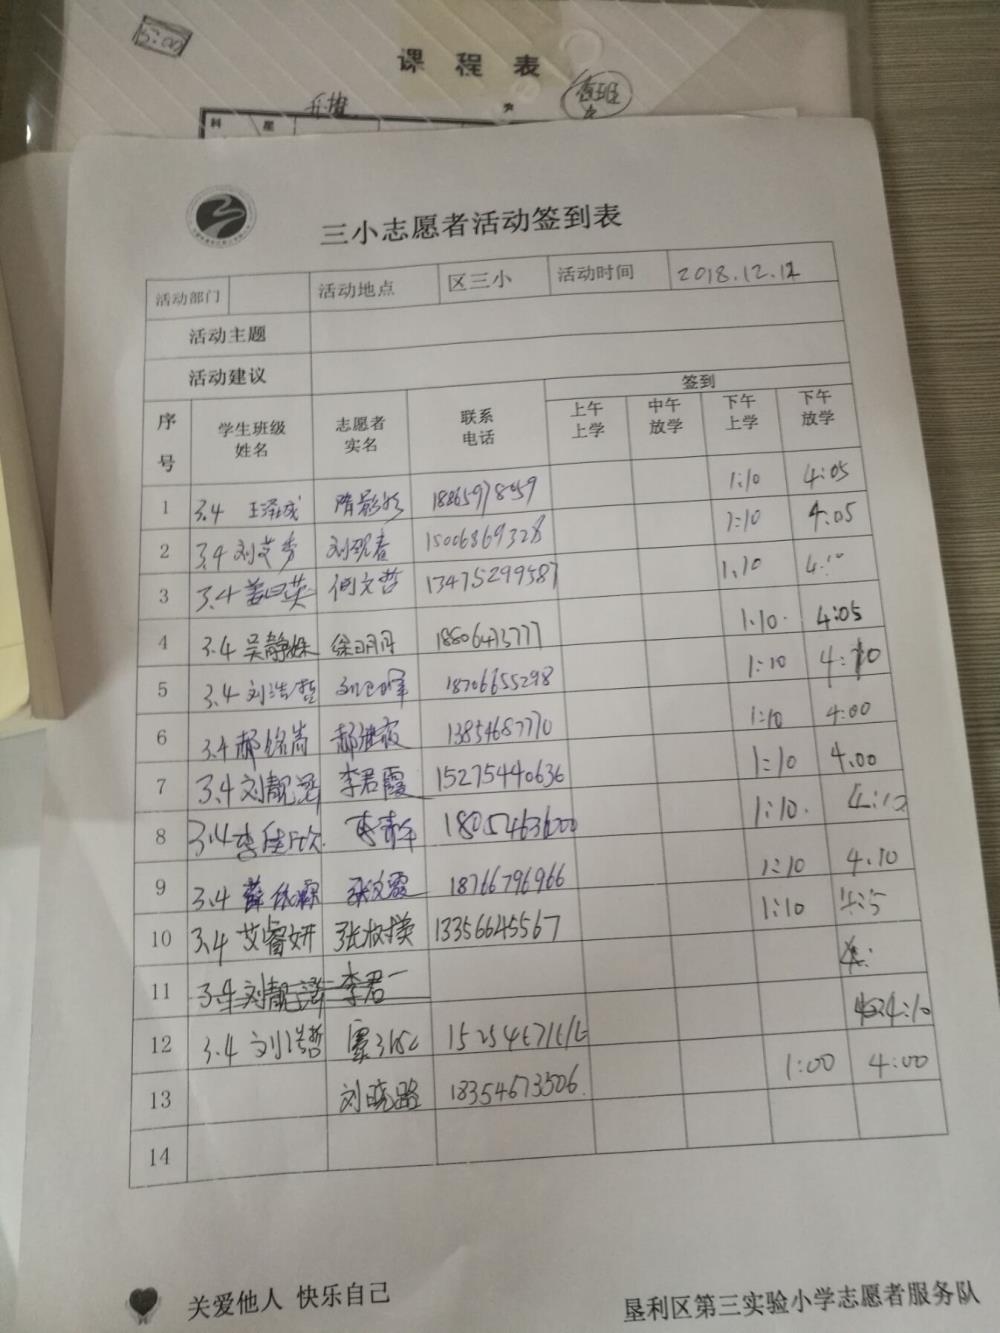 15:00
课 程 表
科 星
三小志愿者活动签到表
活动部门 活动地点 区三小 活动时间 2018.12.12
活动主题
活动建议
签到
序号 学生班级姓名 志愿者实名 联系电话 上午上学 中午放学 下午上学 下午放学
1 3.4 王泽成 隋影 18865978059 1:10 4:05
2 3.4 刘艾秀 刘砚春 15006869328 1:10 4:05
3 3.4 英 何文哲 13475299587 1:10 4:10
4 3.4 吴静姝 徐明丹 18806475777 1:10 4:05
5 3.4 刘浩哲 刘 18706655298 1:10 4:10
6 3.4 郝 郝 13854687770 1:10 4:00
7 3.4 刘靓涵 李君霞 15275440636 1:10 4:00
8 3.4 李佳欣 李 18054636000 1:10 4:10
9 3.4 薛 张文霞 18766796966 1:10 4:10
10 3.4 艾睿妍 张 13356645567 1:10
11 3.4 刘靓涵 李君
12 3.4 刘浩哲 4:10
13 刘晓路 18354673506 1:00 4:00
14
关爱他人 快乐自己
垦利区第三实验小学志愿者服务队